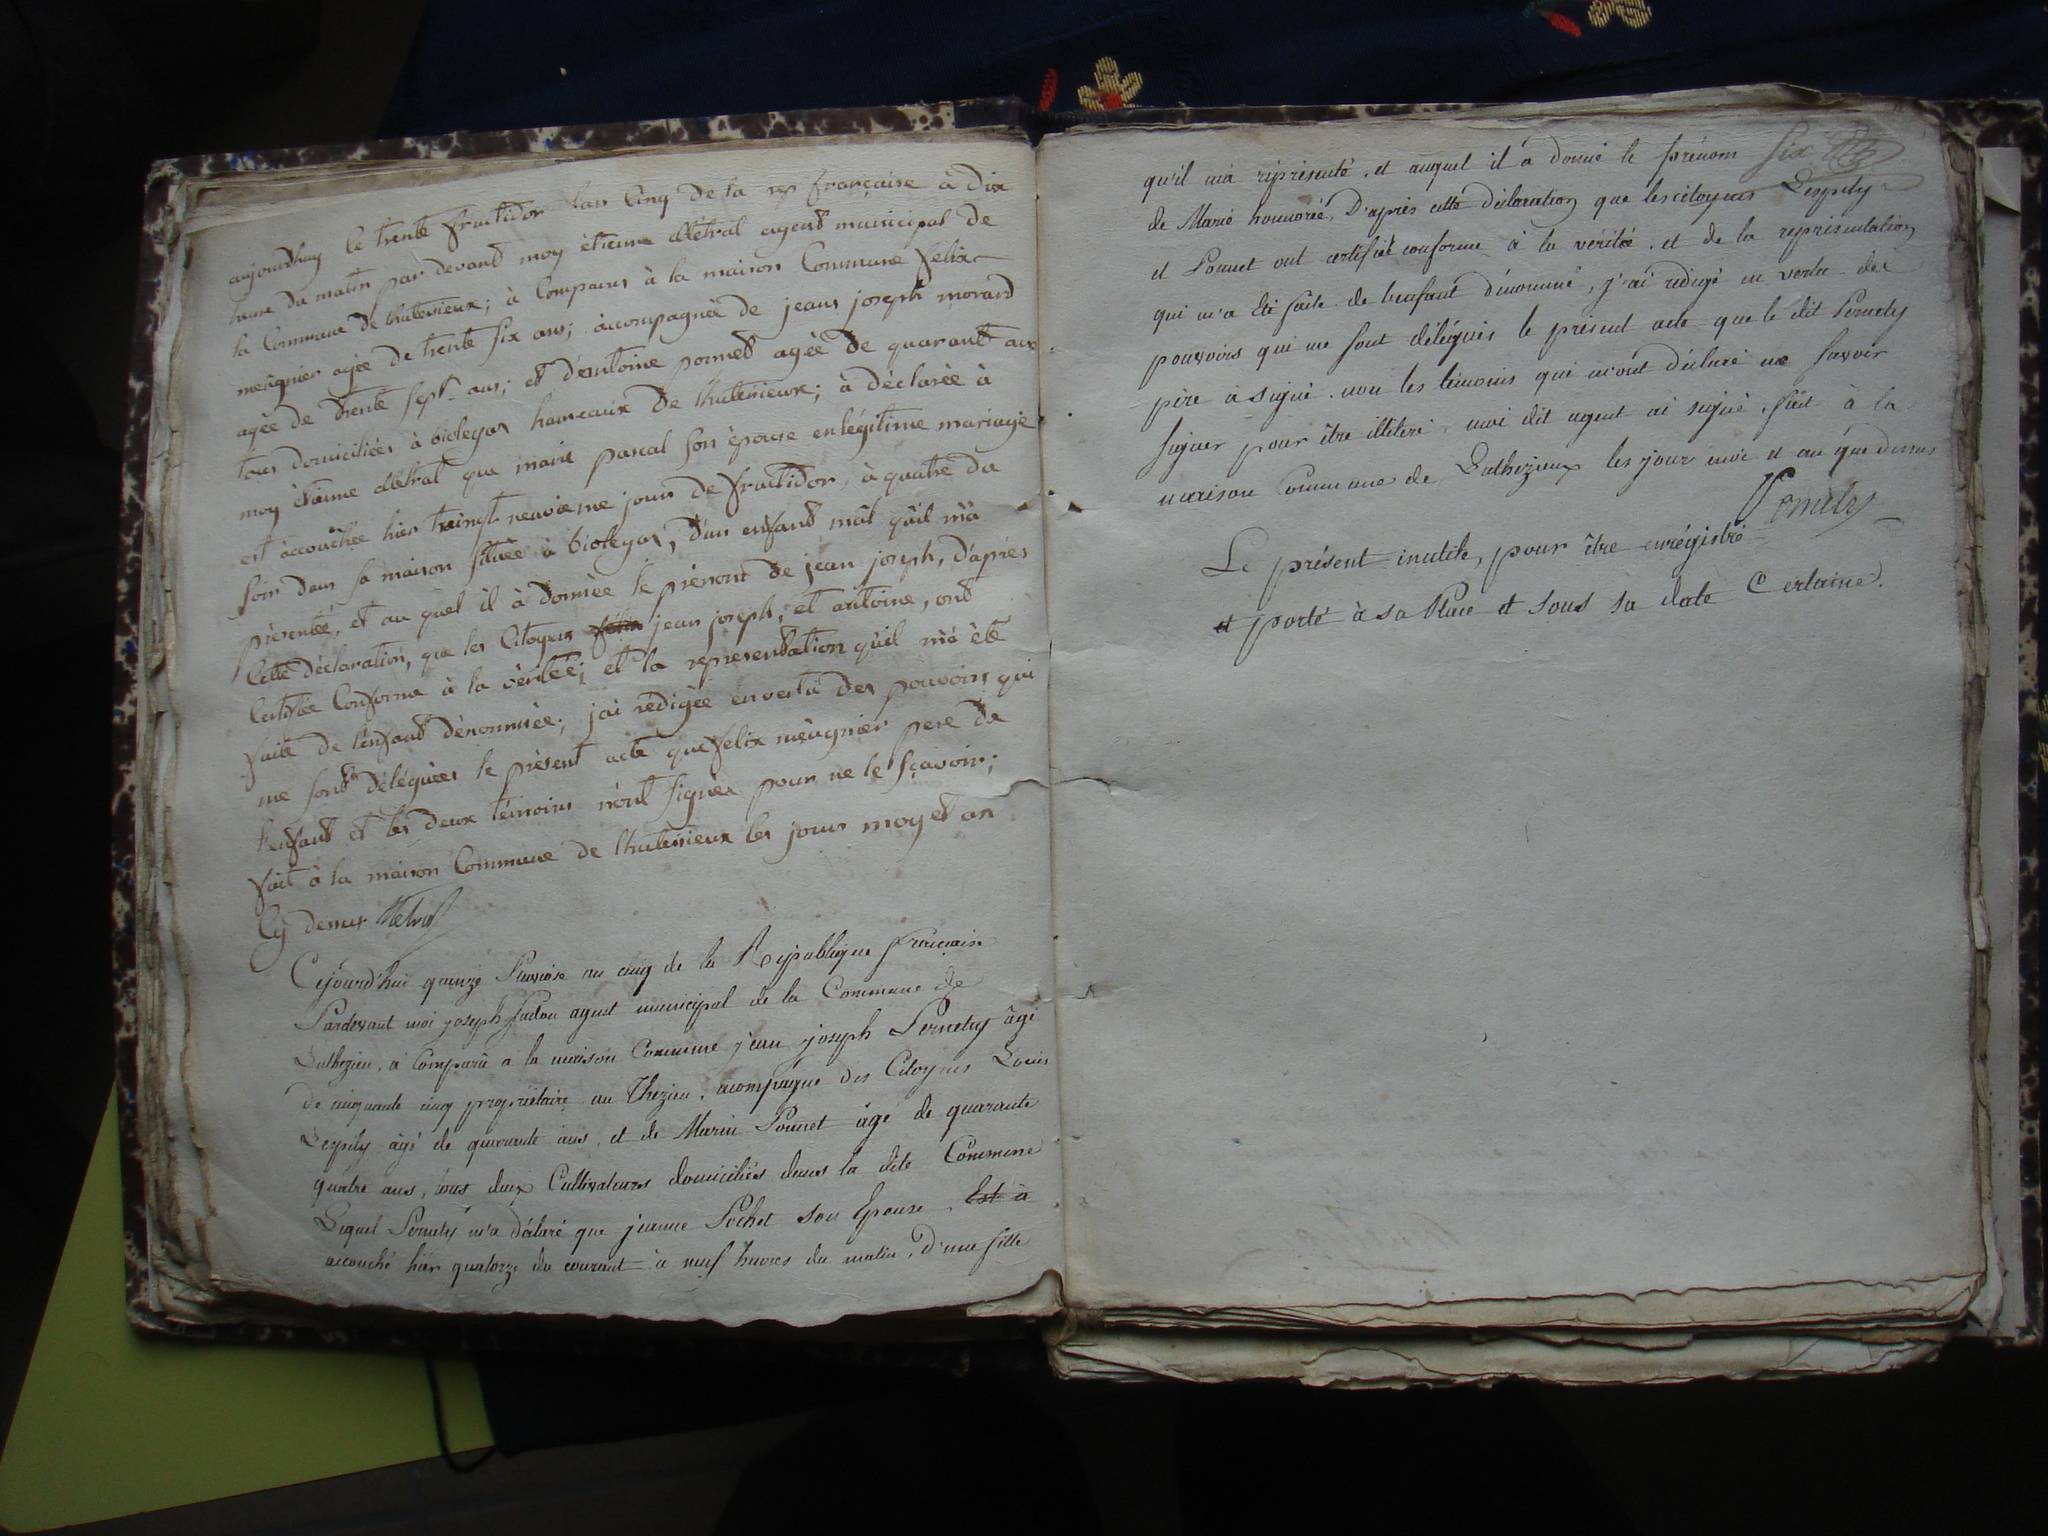 aujourdhuy le trente fructidor lan Cinq de la rep françaîse à dix
heure du matin par devand moy étienne métral agend municipal de
la Commune de lhutesieux; à Comparus à la maison Commune felix
meûgnier agée de trente six ans; àccompagnée de jeans joseph morand
agée de trente sept ans; et d'entoine ponned agée de quarante ans
tous domiciliées à bioleyax hameaux de lhutesieux; à déclarée à
moy étienne métral que marie pascal son épouse en légitime mariage
est accouchée hier neuvieme jour de fructidor, à quatre du
soir dans sa maison située à bioleyax, d'un enfand mâl quil m'à
présentée, et au quel il à donnée le prénom de jean joseph, d'après
Cette déclaration, que les Citoyens felix jean joseph, et antoine, ond
Certifiée Conforme à la véritée; et la représendation quil m'à été
faite de l'enfand dénommée; jai rédigée en vertu des pouvoirs qui
me sond déléguées le présent acte que felix meûgnier pere de
l'enfand et les deux témoins n'ont signés pour ne le sçavoir;
fait à la maison Commune de lhutesieux les jour moy et an
Cy dessus Metral
Cejourd'hui quinze Pluviose an cinq de la République française
Pardevant moi joseph agent municipal de la Commune de
Luthezieu, a Comparu a la maison Commune jean joseph Pernety âgé
de cinquante cinq propriétaire au Thezieu, acompagné des Citoyens Louis
Lespity âgé de quarante ans, et de Marin Ponnet âgé de quarante
quatre ans, tous deux Cultivateurs domiciliés dans la dite Commune
Lequel Pernety m'a déclaré que jeanne Pochet son Epouse Est à
accouché hier quatorze du courant à neuf heures du matin, d'une fille
six
qu'il m'a représenté, et auquel il a donné le prénom
de Marie honnorée, D'après cette déclaration que les citoyens Lespity
et Ponnet ont certifiée conforme à la vérité, et de la représentation
qui m'a été faite de l'enfant dénommé, j'ai rédigé en vertu des
pouvoirs qui me sont délégués le présent acte que le dit Pernety
père a signé, non les témoins qui m'ont déclaré ne savoir
signer pour être illiteré, moi dit agent ai signé, fait à la
maison Commune de Luthezieux les jour mois et an que dessus
Pernety
Le présent inutile, pour être enrégistré
et porté à sa Place et sous sa date Certaine.